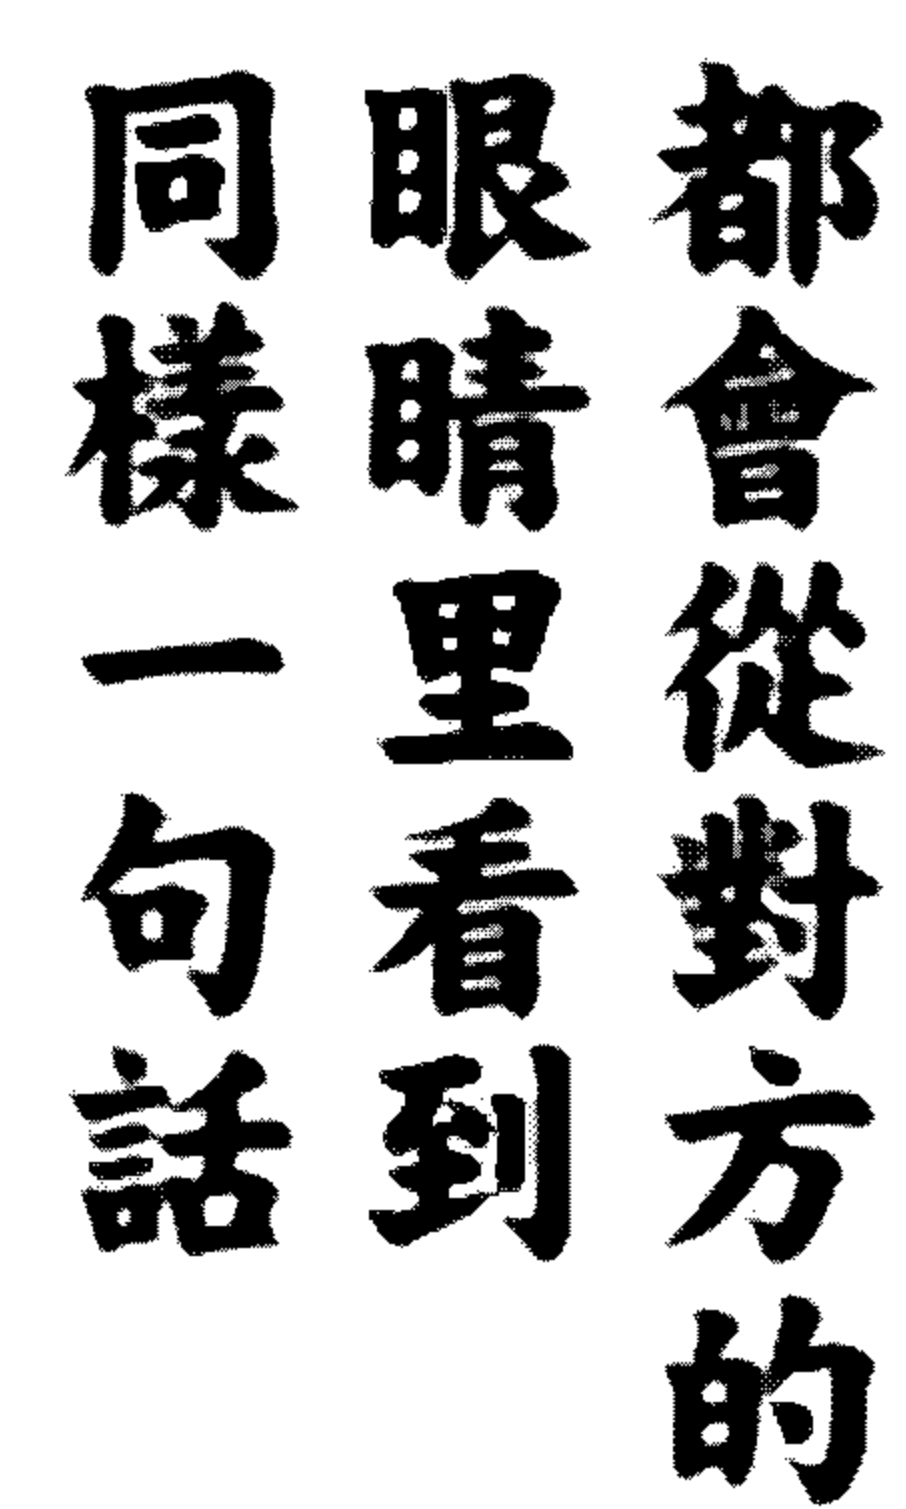 都會從對方的
眼睛里看到
同樣一句話